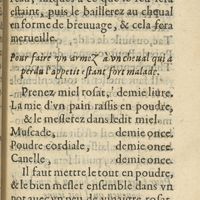 estaint, puis le baillerez au cheual
en forme de breuuage, & cela fera
merueille.
Pour faire vn armez à vn cheual qui a
perdu l'appetit estant fort malade.
Prenez miel rosat, demie liure,
La mie d'vn pain rassis en poudre,
& le meslerez dans ledit miel.
Muscade, demie once.
Poudre cordiale, demie once.
Canelle, demie once.
Il faut mettre le tout en poudre,
& le bien mesler ensemble dans vn
pot auec vn peu de vinaigre rosat